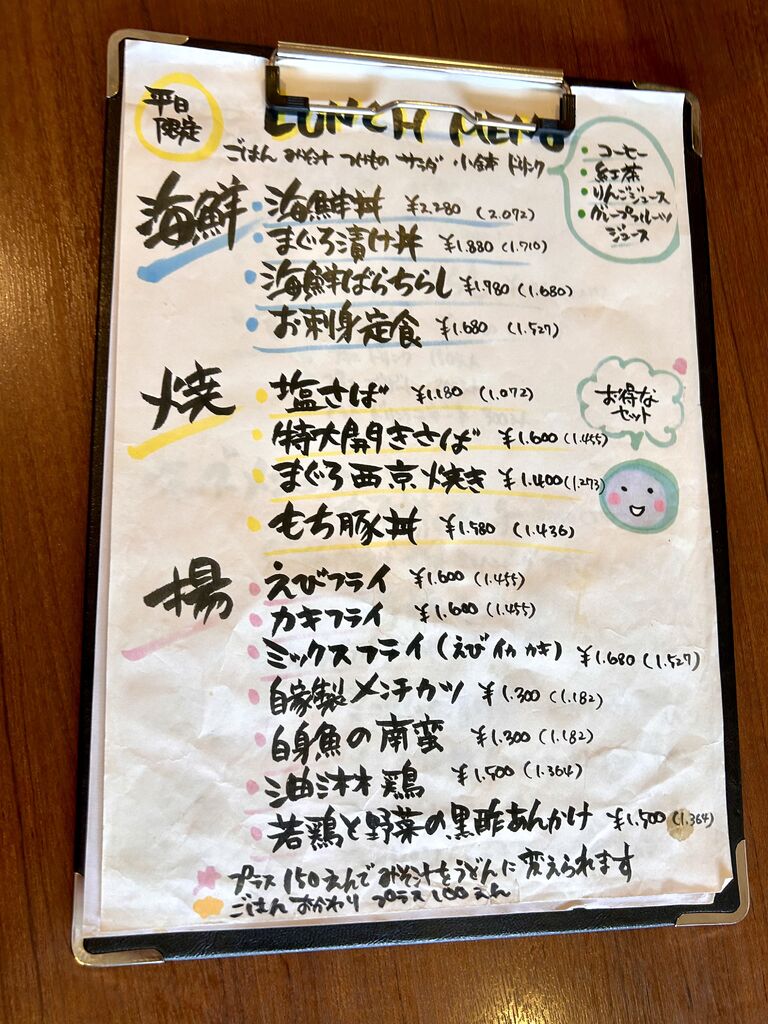 平日
限定
LUNCH MENU
ごはん みそ汁 つけもの サラダ 小鉢 ドリンク
・コーヒー
・紅茶
・りんごジュース
・グレープフルーツ
ジュース
海鮮
・海鮮丼 ¥2.280 (2.072)
・まぐろ漬け丼 ¥1.880 (1.710)
・海鮮ばらちらし ¥1.980 (1.680)
・お刺身定食 ¥1.680 (1.527)
焼
・塩さば ¥1.180 (1.072)
・特大開きさば ¥1.600 (1.455)
・まぐろ西京焼き ¥1.400 (1.273)
・もち豚丼 ¥1.580 (1.436)
お得な
セット
揚
・えびフライ ¥1.600 (1.455)
・カキフライ ¥1.600 (1.455)
・ミックスフライ (えび イカ カキ) ¥1.680 (1.527)
・自家製メンチカツ ¥1.300 (1.182)
・白身魚の南蛮 ¥1.300 (1.182)
・油淋鶏 ¥1.500 (1.364)
・若鶏と野菜の黒酢あんかけ ¥1.500 (1.364)
プラス150えんでみそ汁をうどんに変えられます
ごはんおかわり プラス100えん